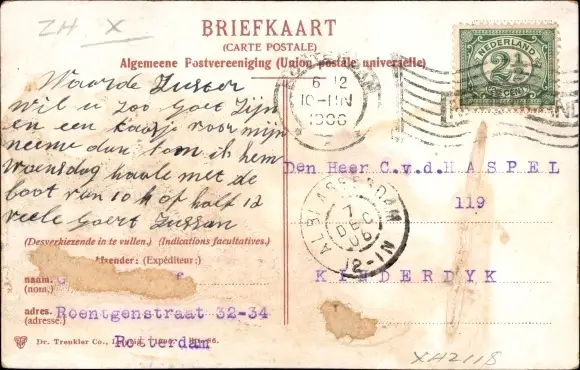 ZH X
BRIEFKAART
(CARTE POSTALE)
Algemeene Postvereeniging (Union postale universelle)
NEDERLAND
2½
CENT
6 12
10-11N
1906
Waarde Zuster
wil u zoo goet zijn
en een kaasje voor mijn
neeme dan kom ik hem
Woensdag haale met de
boot van 10 h of half 12
veele Goert Zussan
Den Heer C.v.d. HASPEL
119
KINDERDYK
ALBLASSERDAM
7
DEC
06
12-1N
(Desverkiezende in te vullen.) (Indications facultatives.)
Afzender: (Expéditeur:)
naam.
(nom.)
adres. Roentgenstraat 32-34
(adresse.)
Rotterdam
Dr. Trenkler Co., Leipzig
XH2118